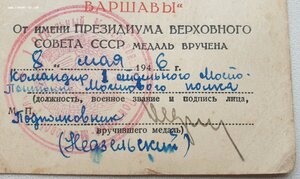 ВАРШАВЫ"
От имени ПРЕЗИДИУМА ВЕРХОВНОГО
СОВЕТА СССР МЕДАЛЬ ВРУЧЕНА
„8" мая 1946 г.
Командир 1 отдельного Мосто-
Мостового полка
(должность, воинское звание и подпись лица,
М. П. Подполковник
вручившего медаль)